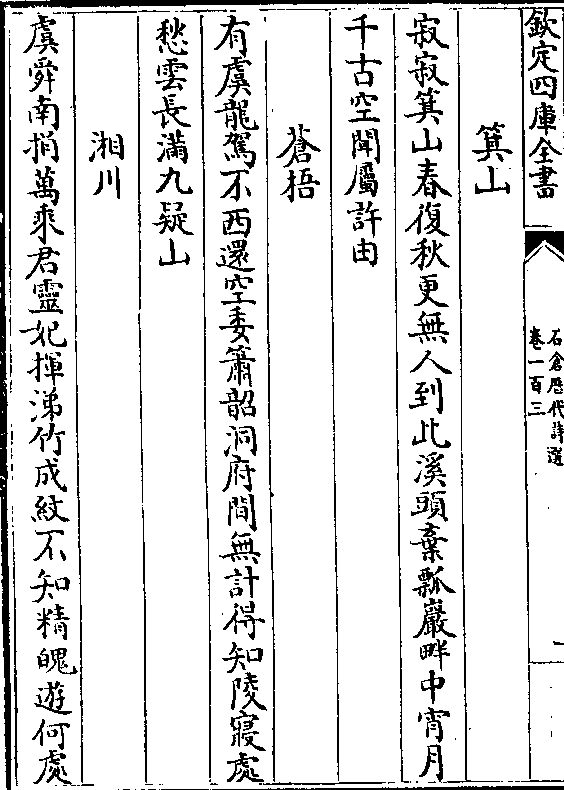 欽定四庫全書
石倉歷代詩選
卷一百三
一
箕山
寂寂箕山春復秋更無人到此溪頭棄瓢巖畔中宵月
千古空聞屬許由
蒼梧
有虞龍駕不西還空委簫韶洞府間無計得知陵寢處
愁雲長滿九疑山
湘川
虞舜南捐萬乘君靈妃揮涕竹成紋不知精魄遊何處